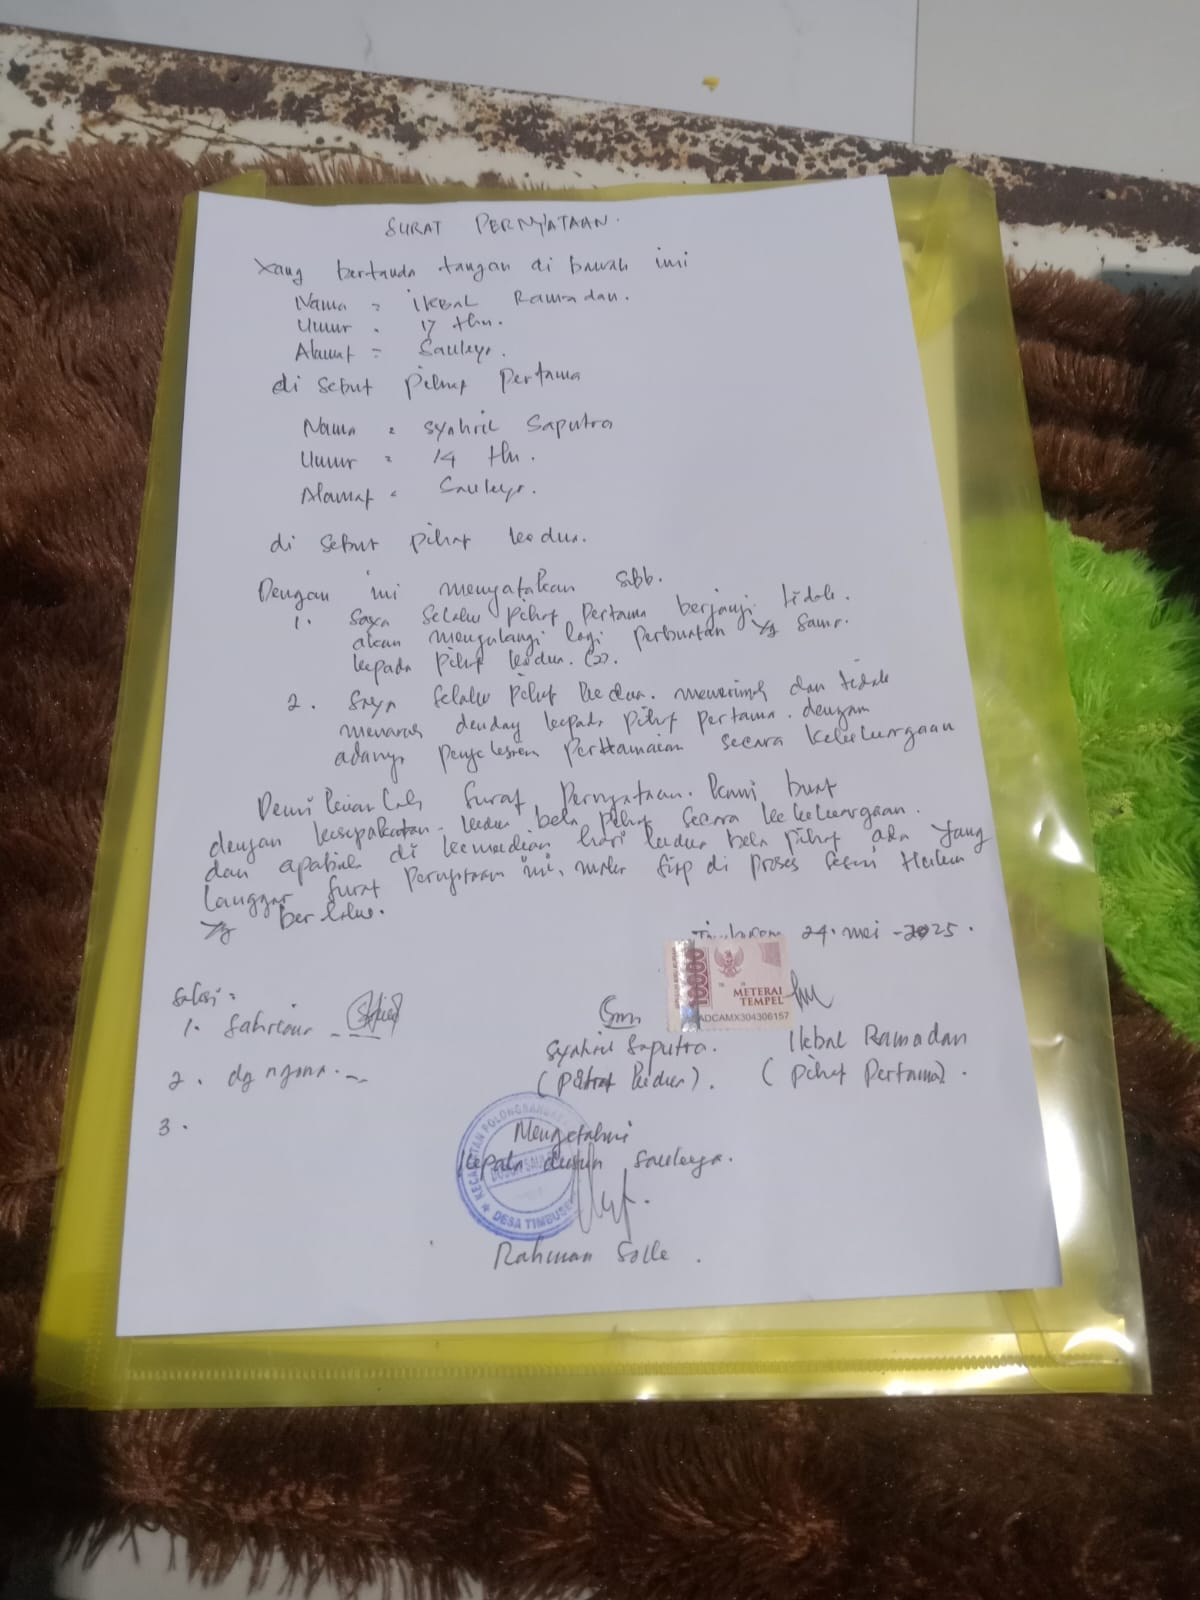 SURAT PERNYATAAN.
Yang bertanda tangan di bawah ini
Nama = Ikbal Ramadan.
Umur = 17 thn.
Alamat = Sauleya.
di sebut pihak pertama
Nama = Syahril Saputra
Umur = 14 thn.
Alamat = Sauleya.
di sebut pihak kedua.
Dengan ini menyatakan sbb.
1. Saya selaku pihak pertama berjanji tidak.
akan mengulangi lagi perbuatan yg sama.
kepada pihak kedua.
2. Saya selaku pihak kedua. menerima dan tidak
denday kepada pihak pertama. dengan
adanya secara kekeluargaan
Demikianlah surat pernyataan. kami buat
dengan kesepakatan. kedua bela pihak secara kekeluargaan.
dan apabila di kemudian hari kedua bela pihak ada yang
langgar surat pernyataan ini, maka siap di proses sesuai Hukum
yg berlaku.
24. mei -2025.
10000
METERAI
TEMPEL
ADCAMX304306157
Saksi =
1.
2. dg ngona.
3.
Syahril Saputra.
(Pihak kedua).
Ikbal Ramadan
(pihak pertama).
Mengetahui
kepala dusun Sauleya.
KECAMATAN POLONGBANGKENG
DUSUN
DESA TIMBUSENG
Rahman Solle.